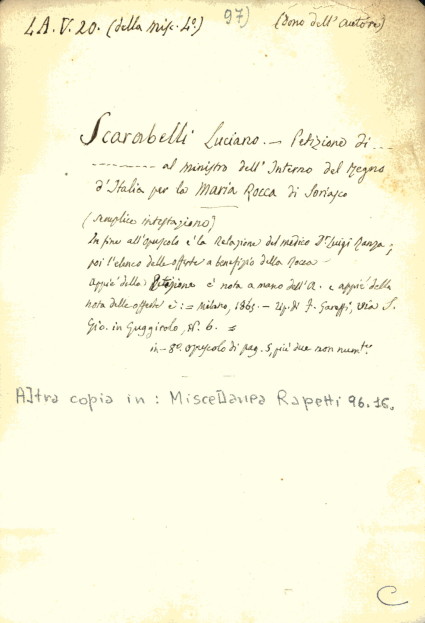 4A.V.20. (della misc. 4°.) 97) (Dono dell' autore)
Scarabelli Luciano. — Petizione di ....
---------- al ministro dell' Interno del Regno
d'Italia per la Maria Rocca di Soriasco
(semplice intestazione)
In fine all'opuscolo è la Relazione del medico Dr Luigi Manza;
poi l'elenco delle offerte a benefizio della Rocca —
Appiè della Petizione è nota a mano dell'A. e appiè della
nota delle offerte è: = Milano, 1865. — Tip. di F. Gareffi, via S.
Gio. in Guggirolo, N. 6. =
in-8°. opuscolo di pag. 5, più due non numte.
Altra copia in: Miscellanea Rapetti 96.16.
C